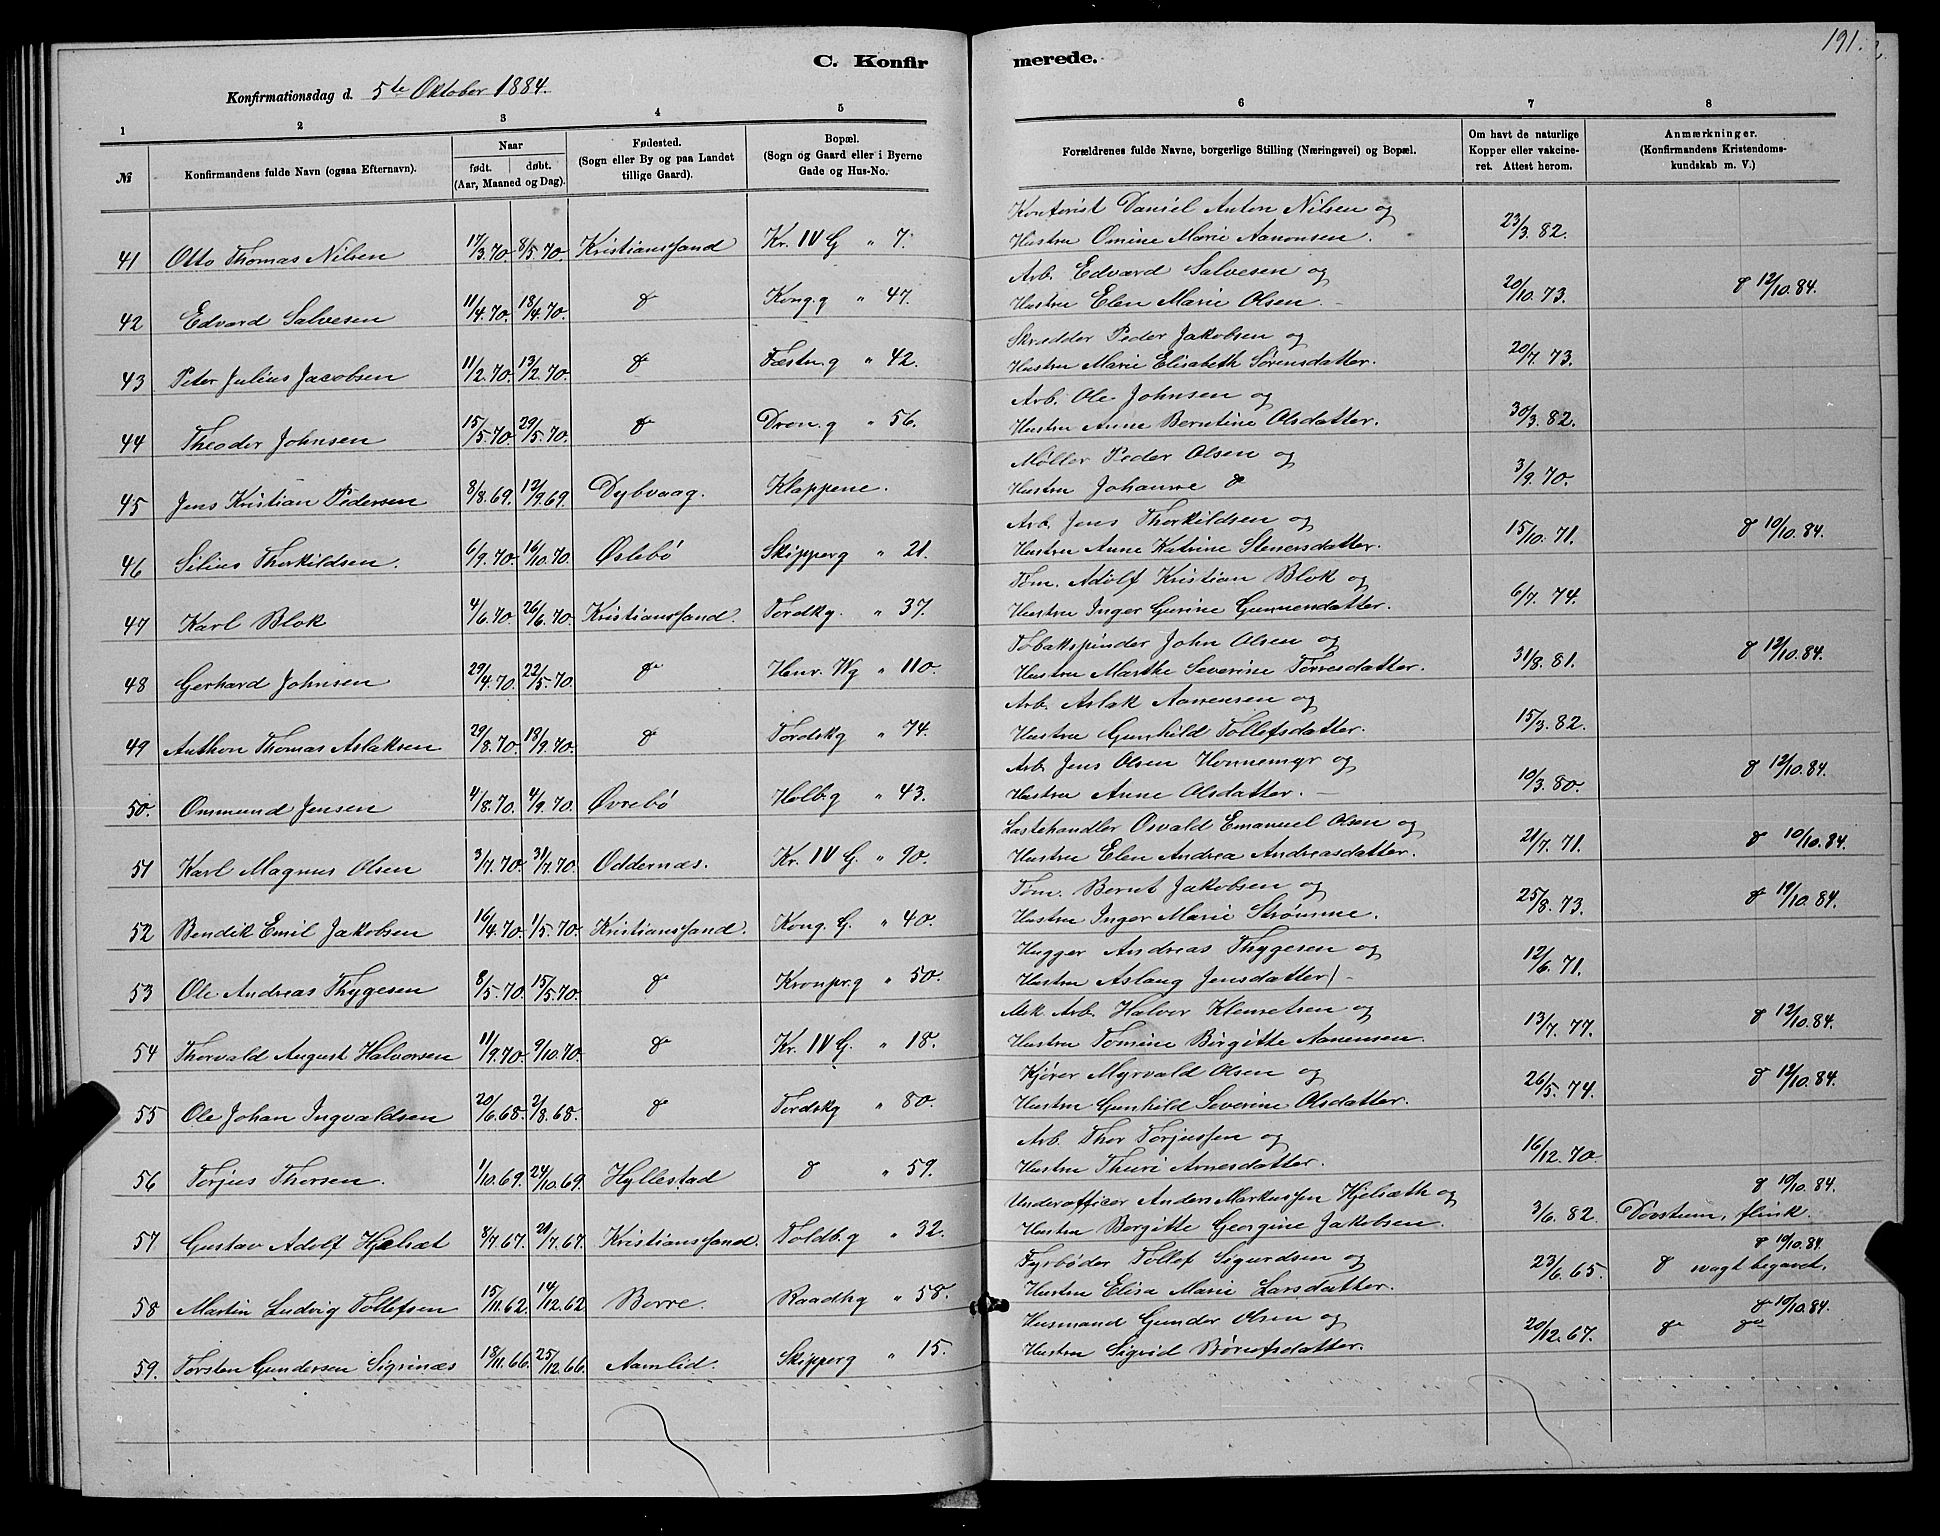 191.
C. Konfirmerede.
Konfirmationsdag d. 5te Oktober 1884.
1 2 3 4 5 6 7 8
№ Konfirmandens fulde Navn (ogsaa Efternavn). Naar født. døbt. (Aar, Maaned og Dag). Fødested. (Sogn eller By og paa Landet tillige Gaard). Bopæl. (Sogn og Gaard eller i Byerne Gade og Hus-No. Forældrenes fulde Navne, borgerlige Stilling (Næringsvei) og Bopæl. Om havt de naturlige Kopper eller vakcineret. Attest herom. Anmærkninger. (Konfirmandens Kristendomskundskab m. V.)
41 Otto Thomas Nilsen 17/3.70. 8/5.70. Kristianssand Kr. IV G " 7. Kontorist Daniel Anton Nilsen og
Hustru Omine Marie Aanonsen. 23/3.82.
42 Edvard Salvesen 11/4.70. 18/4.70. d Kong.g " 47. Arb. Edvard Salvesen og
Hustru Elen Marie Olsen. 20/10.73. d 12/10.84.
43 Peter Julius Jacobsen 11/2.70. 13/2.70. d Fæstn.g " 42. Skrædder Peder Jakobsen og
Hustru Marie Elisabeth Sørensdatter. 20/7.73.
44 Theodor Johnsen 15/5.70. 29/5.70. d Dron.g " 56. Arb. Ole Johnsen og
Hustru Anne Berntine Olsdatter. 30/3.82.
45 Jens Kristian Pedersen 8/8.69. 12/9.69. Dybvaag. Klappene. Møller Peder Olsen og
Hustru Johanne d 3/9.70.
46 Silius Thorkildsen. 6/9.70. 16/10.70. Øslebø Skipperg " 21. Arb. Jens Thorkildsen og
Hustru Anne Katrine Stenersdatter. 15/10.71. d 10/10.84.
47 Karl Blok 4/6.70 26/6.70. Kristianssand. Tordkg. " 37. Tøm. Adolf Kristian Blok og
Hustru Inger Gurine Gunnersdatter. 6/7.74.
48 Gerhard Johnsen 29/4.70. 22/5.70. d Henr. Wg " 110. Tobakspinder John Olsen og
Hustru Marthe Severine Torresdatter. 31/8.81. d 12/10.84.
49 Anthon Thomas Aslaksen 29/8.70. 18/9.70. d Tordskg " 74. Arb. Aslak Aanensen og
Hustru Gunhild Tollefsdatter. 15/3.82.
50. Ommund Jensen 4/8.70. 4/9.70. Øvrebø Holb.g " 43. Arb. Jens Olsen Honnemyr og
Hustru Anne Olsdatter. 10/3.80. d 12/10.84.
51 Karl Magnus Olsen 3/7.70. 31/7.70. Oddernæs. Kr. IV G. " 90. Lastehandler Osvald Emanuel Olsen og
Hustru Elen Andrea Andreasdatter. 21/7.71. d 10/10.84.
52 Bendik Emil Jakobsen 16/4.70. 1/5.70. Kristianssand. Kong. G. " 40. Tøm. Bernt Jakobsen og
Hustru Inger Marie Strømme. 25/8.73. d 19/10.84.
53 Ole Andreas Thygesen 8/5.70. 15/5.70. d Kronpr.g " 50. Hugger Andreas Thygesen og
Hustru Aslaug Jensdatter 12/6.71.
54 Thorvald August Halvorsen 11/9.70. 9/10.70. d Kr. IV G. " 18. Arb. Halvor Klemetsen og
Hustru Tomine Birgitte Aanensen. 13/7.77. d 12/10.84.
55 Ole Johan Ingvaldsen 20/6.68. 2/8.68. d Tordskg " 80. Kjører Myrvald Olsen og
Hustru Gunhild Severine Olsdatter. 26/5.74. d 12/10.84.
56 Torjus Thorsen. 1/10.69. 24/10.69. Hyllestad d " 59. Arb. Thor Torjussen og
Hustru Thuri Arnesdatter. 16/12.70.
57 Gustav Adolf Hjelsæt 8/7.67. 21/7.67. Kristianssand. Toldb.g " 32. Underofficer Anders Markussen Hjelsæth og
Hustru Bergitte Georgine Jakobsen. 3/6.82. Døvstum, flink. d 19/10.84.
58 Martin Ludvig Tollefsen 15/11.62. 14/12.62 Borre. Raadhg " 58. Fyrbøder Tollef Sigurdsen og
Hustru Elisa Marie Larsdatter. 23/6.65. d svagt begavet. d 19/10.84.
59. Torsten Gundersen Sigrinæs 18/11.66. 25/12.66. Aamlid. Skipperg " 15. Husmand Gunder Olsen og
Hustru Sigrid Børufsdatter. 20/12.67. d do d 10/10.84.